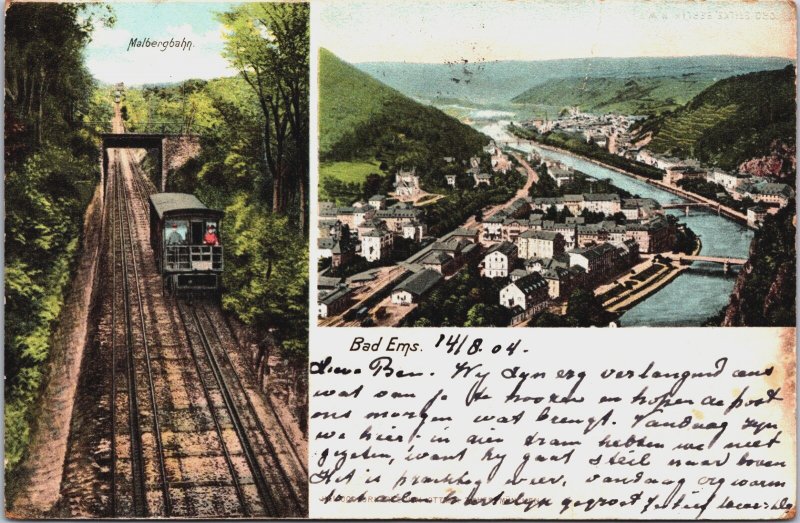 Malbergbahn.
Bad Ems. 14/8.04.
Lieve Ben. Wij zijn erg verlangend eens
wat van je te hooren en hopen de post
ons morgen wat brengt. Vandaag zijn
we hier; in die tram hebben we niet
gezeten, want hij gaat steil naar boven
Het is prachtig weer, vandaag erg warm
allen hartelijk gegroet